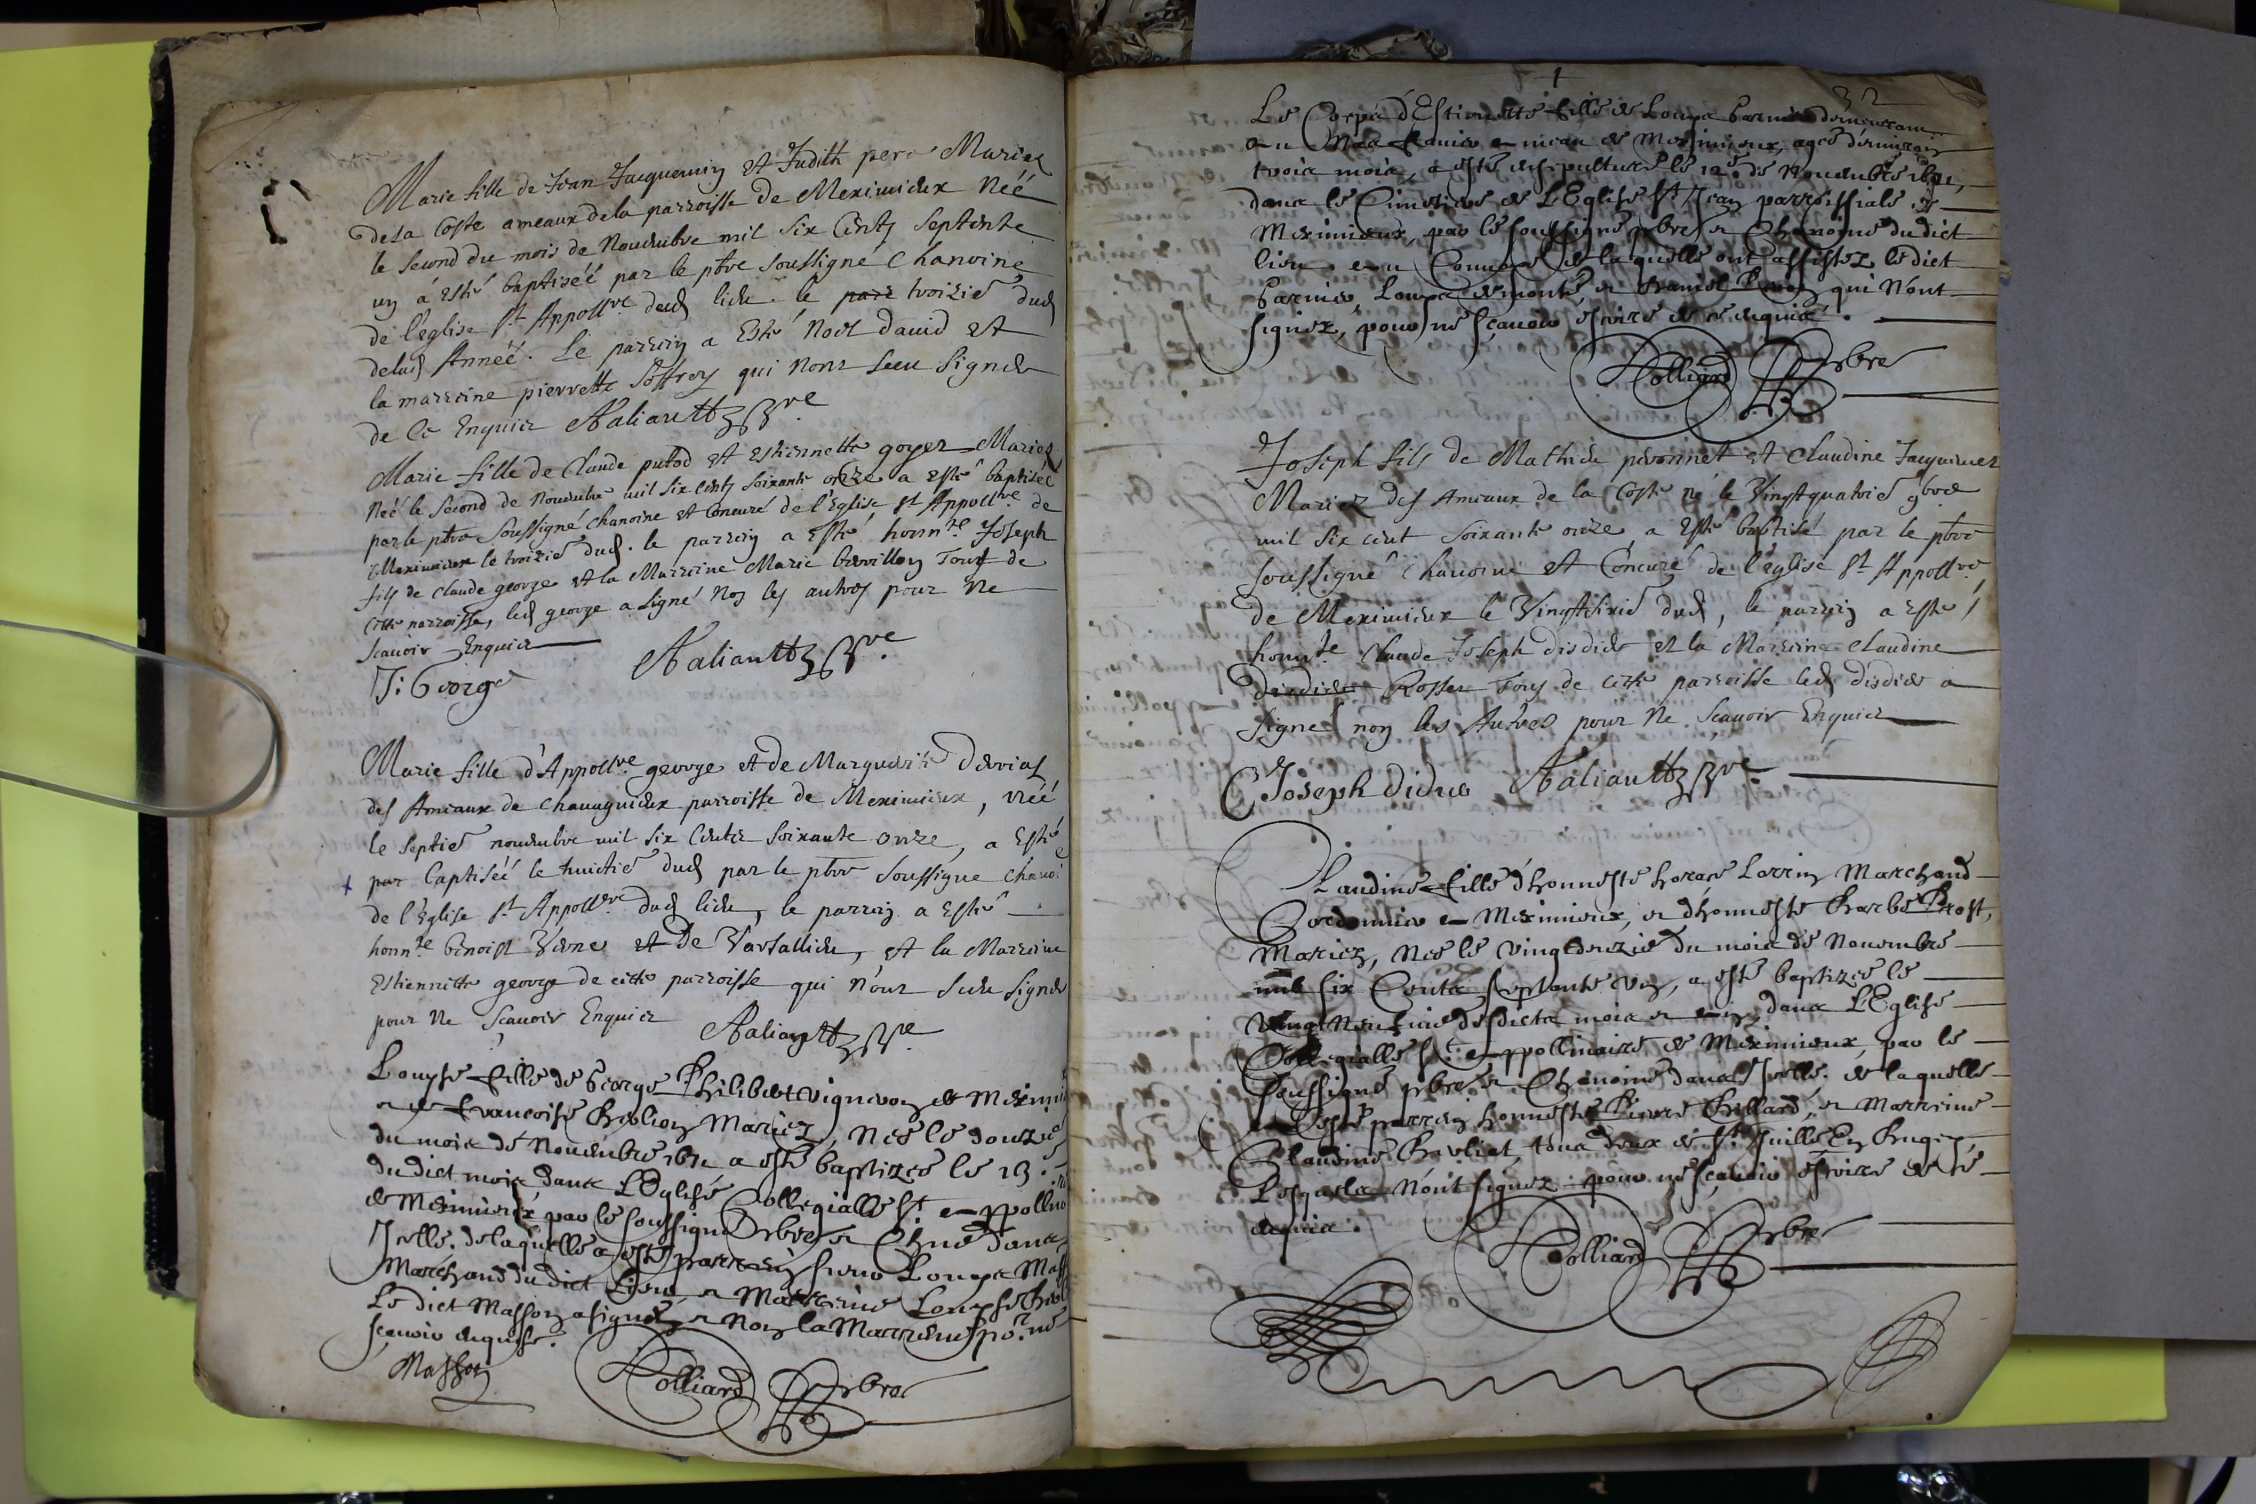 Marie fille de Jean Jacquemin et Judith pera Mariez
de la Coste ameaux de la parroisse de Meximieux Néé
le second du mois de Nouembre mil six Cents septente
un a esté baptiséé par le pbre soussigné Chanoine
de l'eglise St Appollre dud lieu le parr troizie dud
delad Année. Le parrein a Esté Noel dauid et
la marreine pierrette Joffrey qui nont sceu signer
de Ce Enquier Aaliaultz pbre
Marie fille de Claude putod et estiennette goyer Mariez
Néé le second de Nouembre mil six cents soixante onze a esté baptiséé
par le pbre soussigné chanoine et Concuré de l'Eglise St Appollre de
Meximieux le troizie dud. le parrein a esté honnte Joseph
fils de claude george et la Marreine Marie breuillon Tous de
Cette parroisse, led george a signé Non les autres pour ne
scauoir Enquier
J: George Aaliaultz pbre
Marie fille d'Appollre george et de Marguerite derrias
des Ameaux de Chauagnieux parroisse de Meximieux, néé
le septie nouembre mil six Cents soixante onze, a Esté
par baptiséé le huictie dud par le pbre soussigne chanoie
de l'Eglise St Appollre dud lieu, le parrein a Esté
honnte benoist et de Varsallieu, et la Marreine
Estiennette george de cette parroisse qui n'ont sceu signer
pour ne scauoir Enquier Aaliaultz pbre
Louyse fille de George Philibert vignieron de
et de francoise Mariez, Néé le douzie
du mois de Nouembre 1671 a esté baptizéé le 13e
du dict mois dans L'Eglise Collegialle St Appollin
de Meximieux par le soussigné pbre et Chne dans
Icelle. de laquelle a esté parrein sieur Louys Mass
Marchand du dict Lieu, et Marreine Louyse
Le dict Masson a signé, et Non la Marreine por. ne
scauoir enquise.
Masson Colliard pbre
32
Le Corps d'Estiennette fille de Louys demeurant
au Mas ameau de Meximieux, agéé d'enuiron
trois mois, a esté ensepulturé le 12e de Nouembre 1671,
dans le Cimetiere de L'Eglise St Jean parroissiale de
Meximieux, par le soussigné pbre et Chanoine du dict
lieu. au Conuoy de laquelle ont assistez le dict
Louys et qui N'ont
signez, pour ne scauoir escrire de ce enquis.
Colliard pbre
Joseph fils de Mathieu peronnet et Claudine Jacquemet
Mariez des Ameaux de la Coste né le Vingtquatrie 9bre
mil six cent soixante onze, a Esté baptisé par le pbre
soussigné Chanoine et Concuré de l'église St Appollre
de Meximieux le Vingtsixie dud, le parrein a esté
honnte Claude Joseph disdier et la Marreine Claudine
disdier Rosset Tous de cette parroisse led disdier a
signé non les Autres pour ne scauoir Enquier
C Joseph didier Aaliaultz pbre
Claudine fille d'honneste horace Lorrin Marchand
Cordonnier a Meximieux, et d'honneste Barbe Prost,
Mariez, Néé le vingtdeuzie du mois de Nouembre
mil six Cents septante vn, a esté baptizéé le
vingt Neufuie desdicts mois et an, dans L'Eglise
Collegialle St Appollinaire de Meximieux, par le
soussigné pbre et Chanoine dans Icelle. de laquelle
a esté parrein honneste Pierre Chillard, et Marreine
Claudine tous deux de
Lesquels N'ont signez pour ne scauoir escrire de ce
enquis.
Colliard pbre